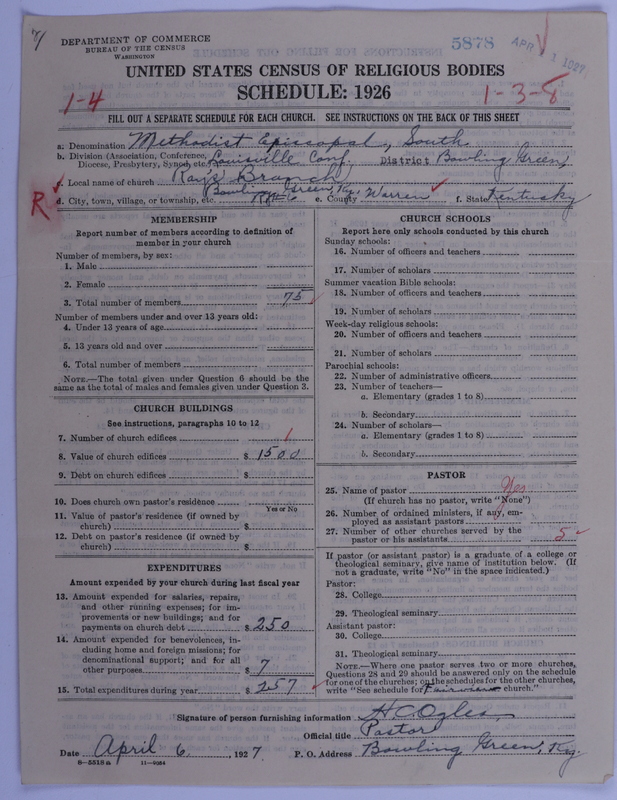 DEPARTMENT OF COMMERCE
BUREAU OF THE CENSUS
WASHINGTON
5878
APR 11 1927
UNITED STATES CENSUS OF RELIGIOUS BODIES
SCHEDULE: 1926
1-4
1-3-8
FILL OUT A SEPARATE SCHEDULE FOR EACH CHURCH. SEE INSTRUCTIONS ON THE BACK OF THIS SHEET
a. Denomination Methodist Episcopal, South
b. Division (Association, Conference, Diocese, Presbytery, Synod, etc.) Louisville Conf. District Bowling Green,
c. Local name of church Rays Branch
R d. City, town, village, or township, etc. Bowling Green, Ky. R#6 e. County Warren f. State Kentucky
MEMBERSHIP
Report number of members according to definition of
member in your church
Number of members, by sex:
1. Male
2. Female
3. Total number of members 75
Number of members under and over 13 years old:
4. Under 13 years of age
5. 13 years old and over
6. Total number of members
NOTE.—The total given under Question 6 should be the
same as the total of males and females given under Question 3.
CHURCH BUILDINGS
See instructions, paragraphs 10 to 12
7. Number of church edifices 1
8. Value of church edifices $ 1500
9. Debt on church edifices $
10. Does church own pastor's residence
Yes or No
11. Value of pastor's residence (if owned by
church) $
12. Debt on pastor's residence (if owned by
church) $
EXPENDITURES
Amount expended by your church during last fiscal year
13. Amount expended for salaries, repairs,
and other running expenses; for im-
provements or new buildings; and for
payments on church debt $ 250
14. Amount expended for benevolences, in-
cluding home and foreign missions; for
denominational support; and for all
other purposes $ 7
15. Total expenditures during year $ 257
CHURCH SCHOOLS
Report here only schools conducted by this church
Sunday schools:
16. Number of officers and teachers
17. Number of scholars
Summer vacation Bible schools:
18. Number of officers and teachers
19. Number of scholars
Week-day religious schools:
20. Number of officers and teachers
21. Number of scholars
Parochial schools:
22. Number of administrative officers
23. Number of teachers—
a. Elementary (grades 1 to 8)
b. Secondary
24. Number of scholars—
a. Elementary (grades 1 to 8)
b. Secondary
PASTOR
25. Name of pastor Yes
(If church has no pastor, write "None")
26. Number of ordained ministers, if any, em-
ployed as assistant pastors
27. Number of other churches served by the
pastor or his assistants 5
If pastor (or assistant pastor) is a graduate of a college or
theological seminary, give name of institution below. (If
not a graduate, write "No" in the space indicated.)
Pastor:
28. College
29. Theological seminary
Assistant pastor:
30. College
31. Theological seminary
NOTE.—Where one pastor serves two or more churches,
Questions 28 and 29 should be answered only on the schedule
for one of the churches; on the schedules for the other churches,
write "See schedule for Fairview church."
Signature of person furnishing information H.C. Ogles
Official title Pastor
Date April 6, 1927 P. O. Address Bowling Green, Ky.
8—5518a 11—9054